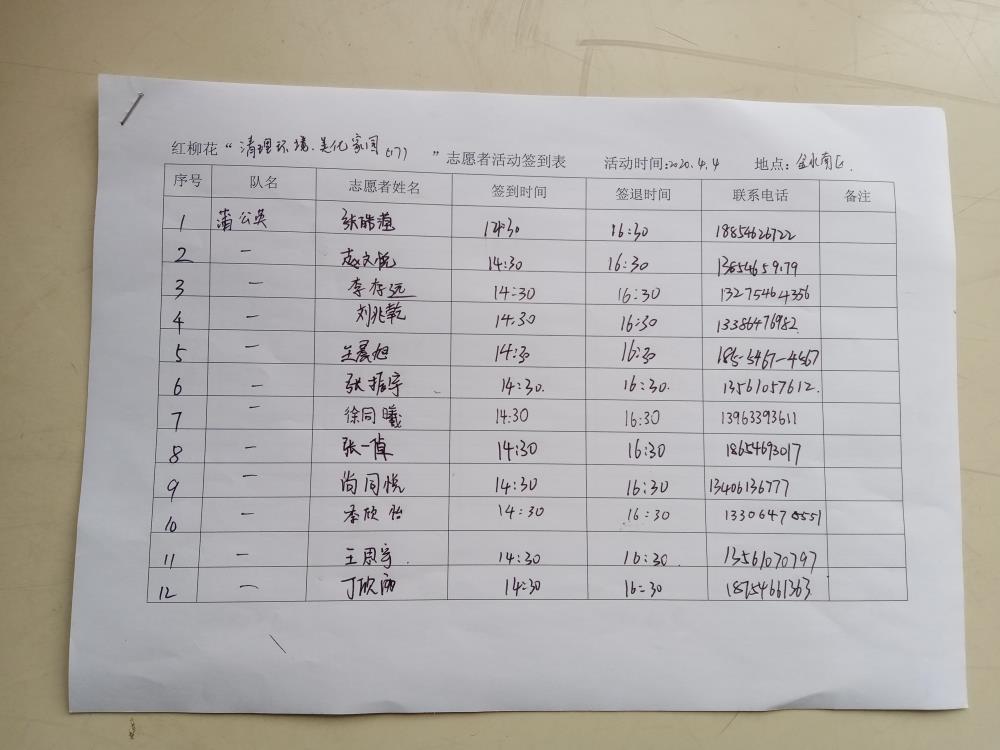 红柳花“清理环境.美化家园(17)”志愿者活动签到表 活动时间:2020.4.4 地点:金水南区.
序号 队名 志愿者姓名 签到时间 签退时间 联系电话 备注
1 蒲公英 张皓 14:30 16:30 18854626722
2 一 赵文悦 14:30 16:30 13854659179
3 一 李存远 14:30 16:30 13275464356
4 一 刘兆乾 14:30 16:30 13386476982
5 一 王晨旭 14:30 16:30 185-5467-4567
6 一 张振宇 14:30. 16:30. 13561057612.
7 一 徐同曦 14:30 16:30 13963393611
8 一 张一卓 14:30 16:30 18654693017
9 一 尚同悦 14:30 16:30 13406136777
10 一 季欣怡 14:30 16:30 13306470551
11 一 王思宇. 14:30 16:30. 13561070797
12 一 丁欣 14:30 16:30 18754661363